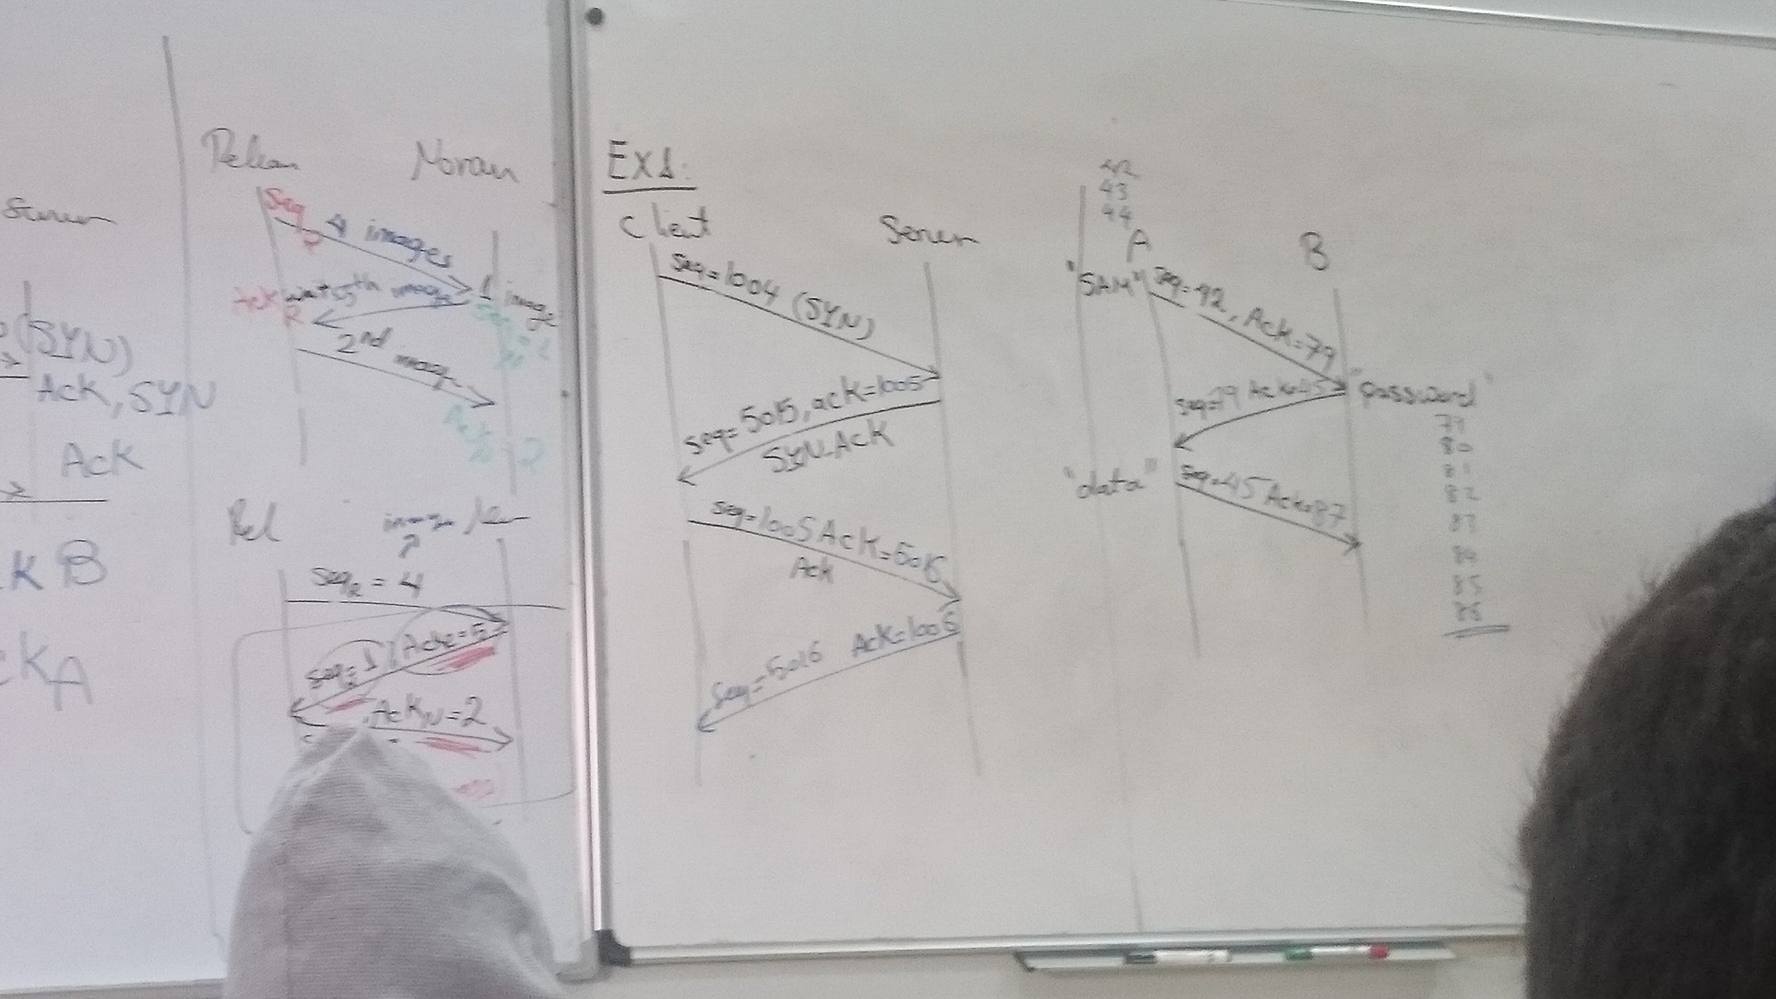 (SYN)
Ack, SYN
Ack
K B
KA
Moran
Seq
4 images
1 image
Ack want 5th image
2nd image
Rel
image
seqR = 4
seq=1, Ack=5
AckN=2
Ex1:
Client
Server
seq=1004 (SYN)
seq=5015, ack=1005
SYN-Ack
seq=1005 Ack=5016
Ack
Seq=5016 Ack=1006
42
43
44
A
B
"SAM"
seq=42, Ack=79
seq=79 Ack=45
"password"
79
80
81
82
83
84
85
86
"data"
seq=45 Ack=87